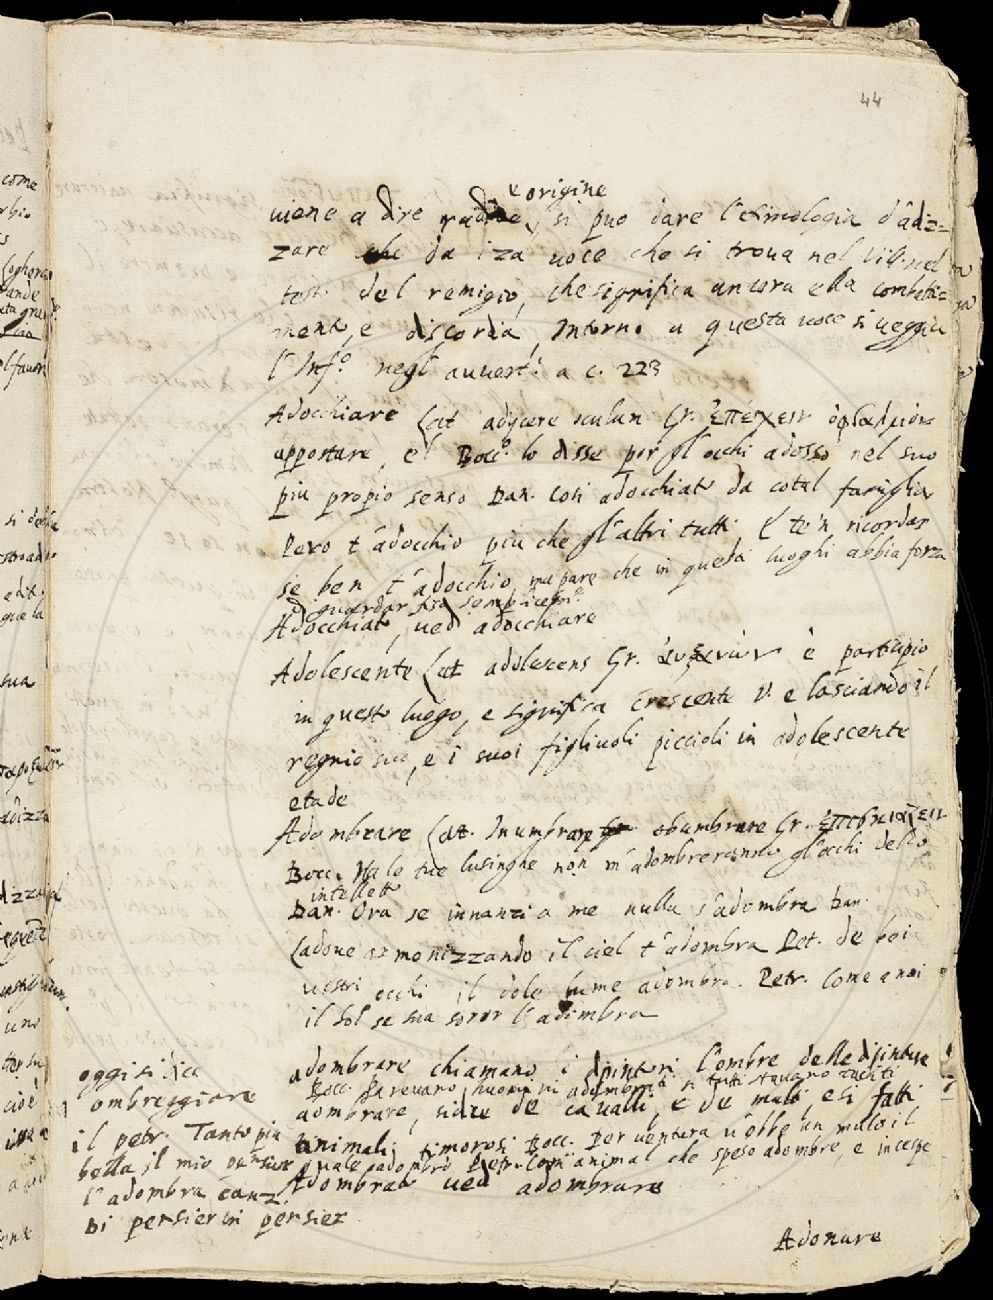 44
origine
uiene a dire radice, si puo dare l'etimologia d'adiz=
zare da iza uoce che si troua nel
test. del remigio, che significa ancora ella combatti=
mento, e discordia, Intorno a questa uoce si ueggia
l'Inf.º negl'auuert.i a c. 223
Adocchiare Lat adijcere Gr. ἐπέχειν ὀφθαλμὸν
appostare, e'l Bocc.º lo disse por gl'occhi adosso nel suo
piu propio senso Dan. Cosi adocchiato da cotal famiglia
Pero t'adocchio piu che gl'altri tutti E te'n ricordar
se ben t'adocchio ma pare che in questi luoghi abbia forza
di guardar fiso semplicem.te
Adocchiato, uedi adocchiare
Adolescente Lat adolescens Gr. è participio
in questo luogo, e significa Crescente V. e lasciando il
regnio suo, e i suoi figliuoli piccioli in adolescente
etade
Adombrare Lat. Inumbrare obumbrare Gr. ἐπισκιάζειν
Bocc. Ma le tue lusinghe non m'adombreranno gl'occhi dello
intelletto
Dan. Ora se innanzi a me nulla s'adombra Dan.
Ladoue armonizzando il ciel t'adombra Pet. de boi
uostri occhi il dole lume adombra. Petr. Come a noi
il Sol se sua soror l'adombra
adombrare chiamano i dipintori l'ombre delle dipinture
Bocc. Pareuano huomini adombrati si tutti stauano taciti
aombrare, si dice de caualli, e de muli e si fatti
animali timorosi Bocc. Per uentura u'ebbe un mullo il
quale adombrò Petr. Com' animal che speso adombre, e incespe
Adombrato uedi adombrare
oggi si dice
ombreggiare
il petr. Tanto piu
bella il mio pensier
l'adombra canz.
Di pensier in pensier
Adonare